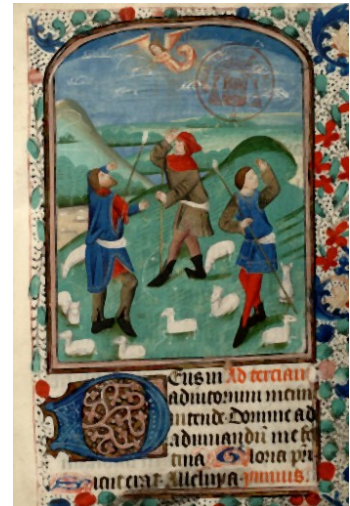 Eus in Ad terciam
adiutorium meum
intende Domine ad
adiuuandū me fe
stina Gloria pri
Sicut erat Alleluya